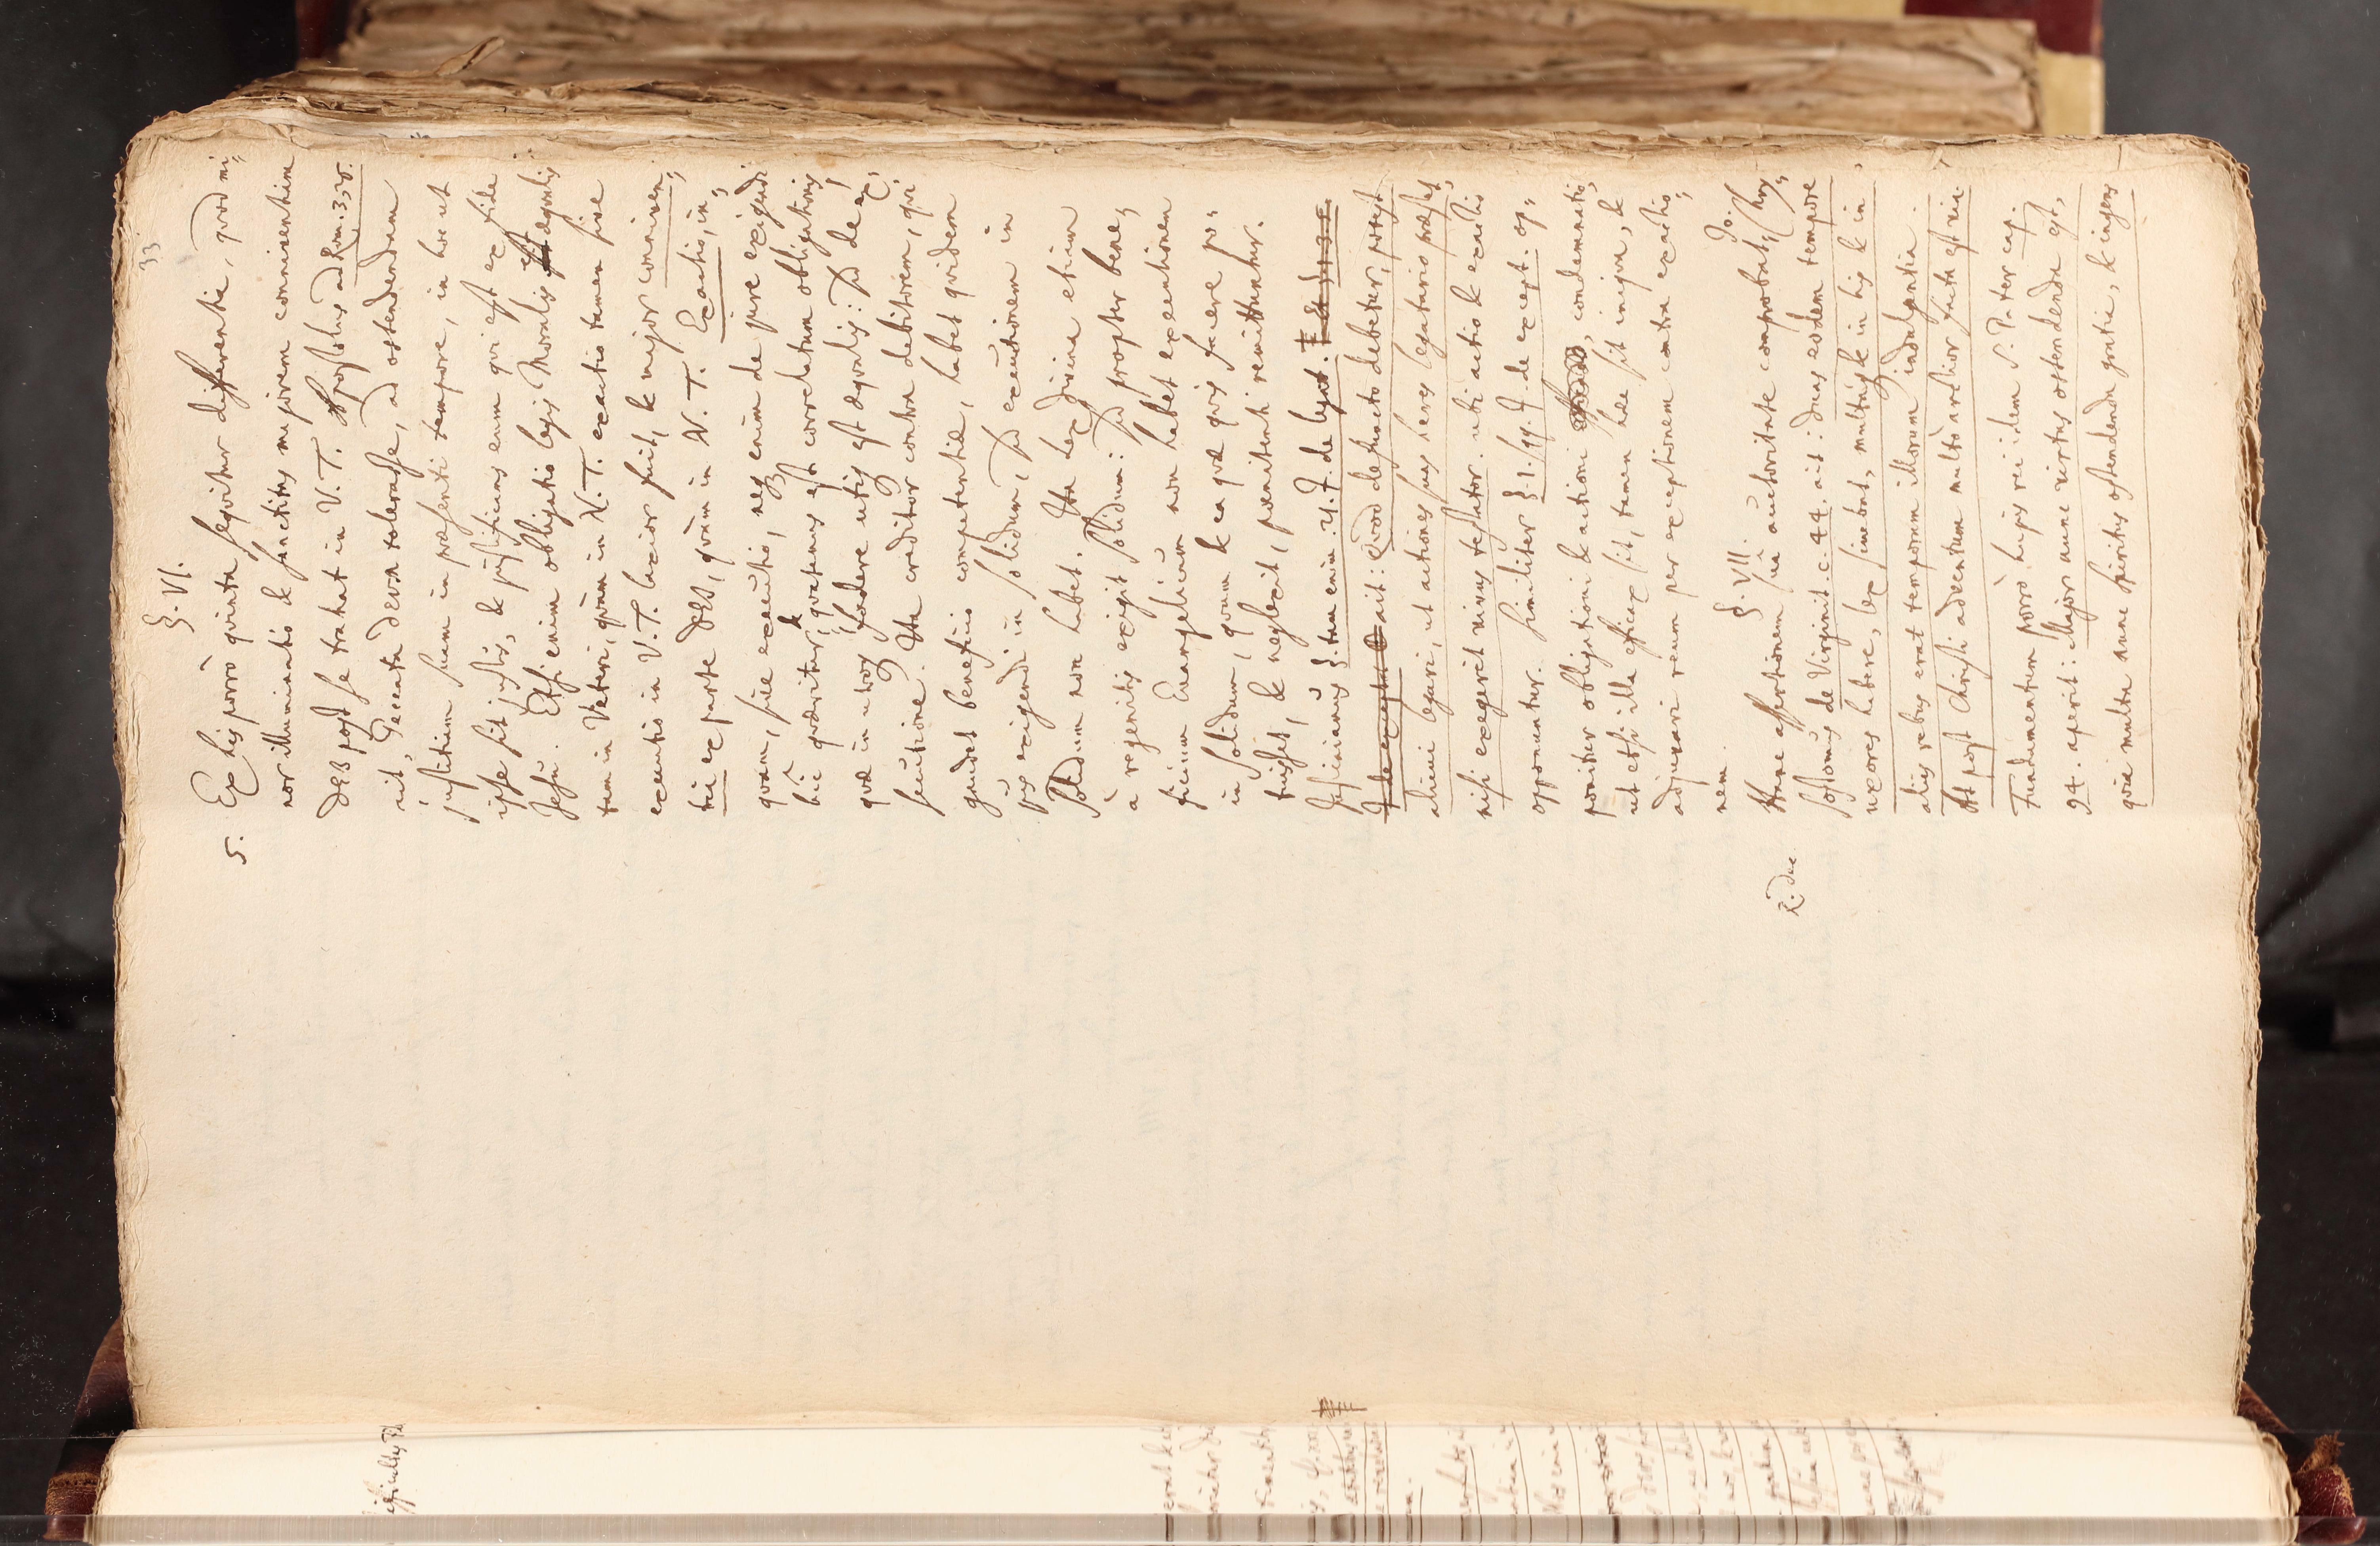 33
§. VI.
5. Ex his porrò quinta sequitur differentia, quod mi=
nor illuminatio & sanctitas majorem conniventiam
DEI post se trahat in V. T. Apostolus ad Rom. 3, 25.
ait, Peccata DEUM tolerasse, ad ostendendam
justitiam suam in præsenti tempore, in hoc ut
ipse sit justus, & justificans eum qui est ex fide
Jesu. Etsi enim obligatio legis Moralis est æqualis
tam in Veteri, quàm in N. T. exactio tamen sive
executio in V. T. laxior fuit, & major conniven=
tia ex parte DEI, quàm in N. T. Exactio, in=
quam, sive executio, neq; enim de jure exigendi
hîc quæritur, & quatenus est correlatum obligationis,
quæ in utroq; fœdere utiq; est æqualis: sed de ex=
secutione. Ita creditor contra debitorem, qui
gaudet beneficio competentiæ, habet quidem
jus exigendi in solidum, sed executionem in
solidum non habet. Ita lex divina etiam
à regenitis exigit solidum: sed propter bene=
ficium Euangelicum non habet executionem
in solidum, quum & ea quæ quis facere po=
tuisset, & neglexit, pœnitenti remittuntur.
Justinianus §. tam enim. 21. J. de legat.
ait: Quod defuncto debetur, potest
alicui legari, ut actiones suas heres legatario præstet,
nisi exegerit vivus testator. ubi actio & exactio
opponuntur. similiter §. 1. sqq. J. de except. op=
ponitur obligationi & actioni, condemnatio,
ut etsi illa efficax sit, tamen hæc sit iniqua, &
adjuvari reum per exceptionem contra exactio=
nem.
§. VII.
Hanc assertionem suâ auctoritate comprobat Jo. Chry=
sostomus de Virginit. c. 44. ait: duas eodem tempore
uxores habere, lex sinebat, multaq; in his & in
aliis rebus erat temporum illorum indulgentia.
At post Christi adventum multò arctior facta est via
Fundamentum porrò hujus rei idem S. Pater cap.
94. aperit: Major nunc virtus ostendenda est,
quia multa nunc spiritus ostendenda gratia, & ingens